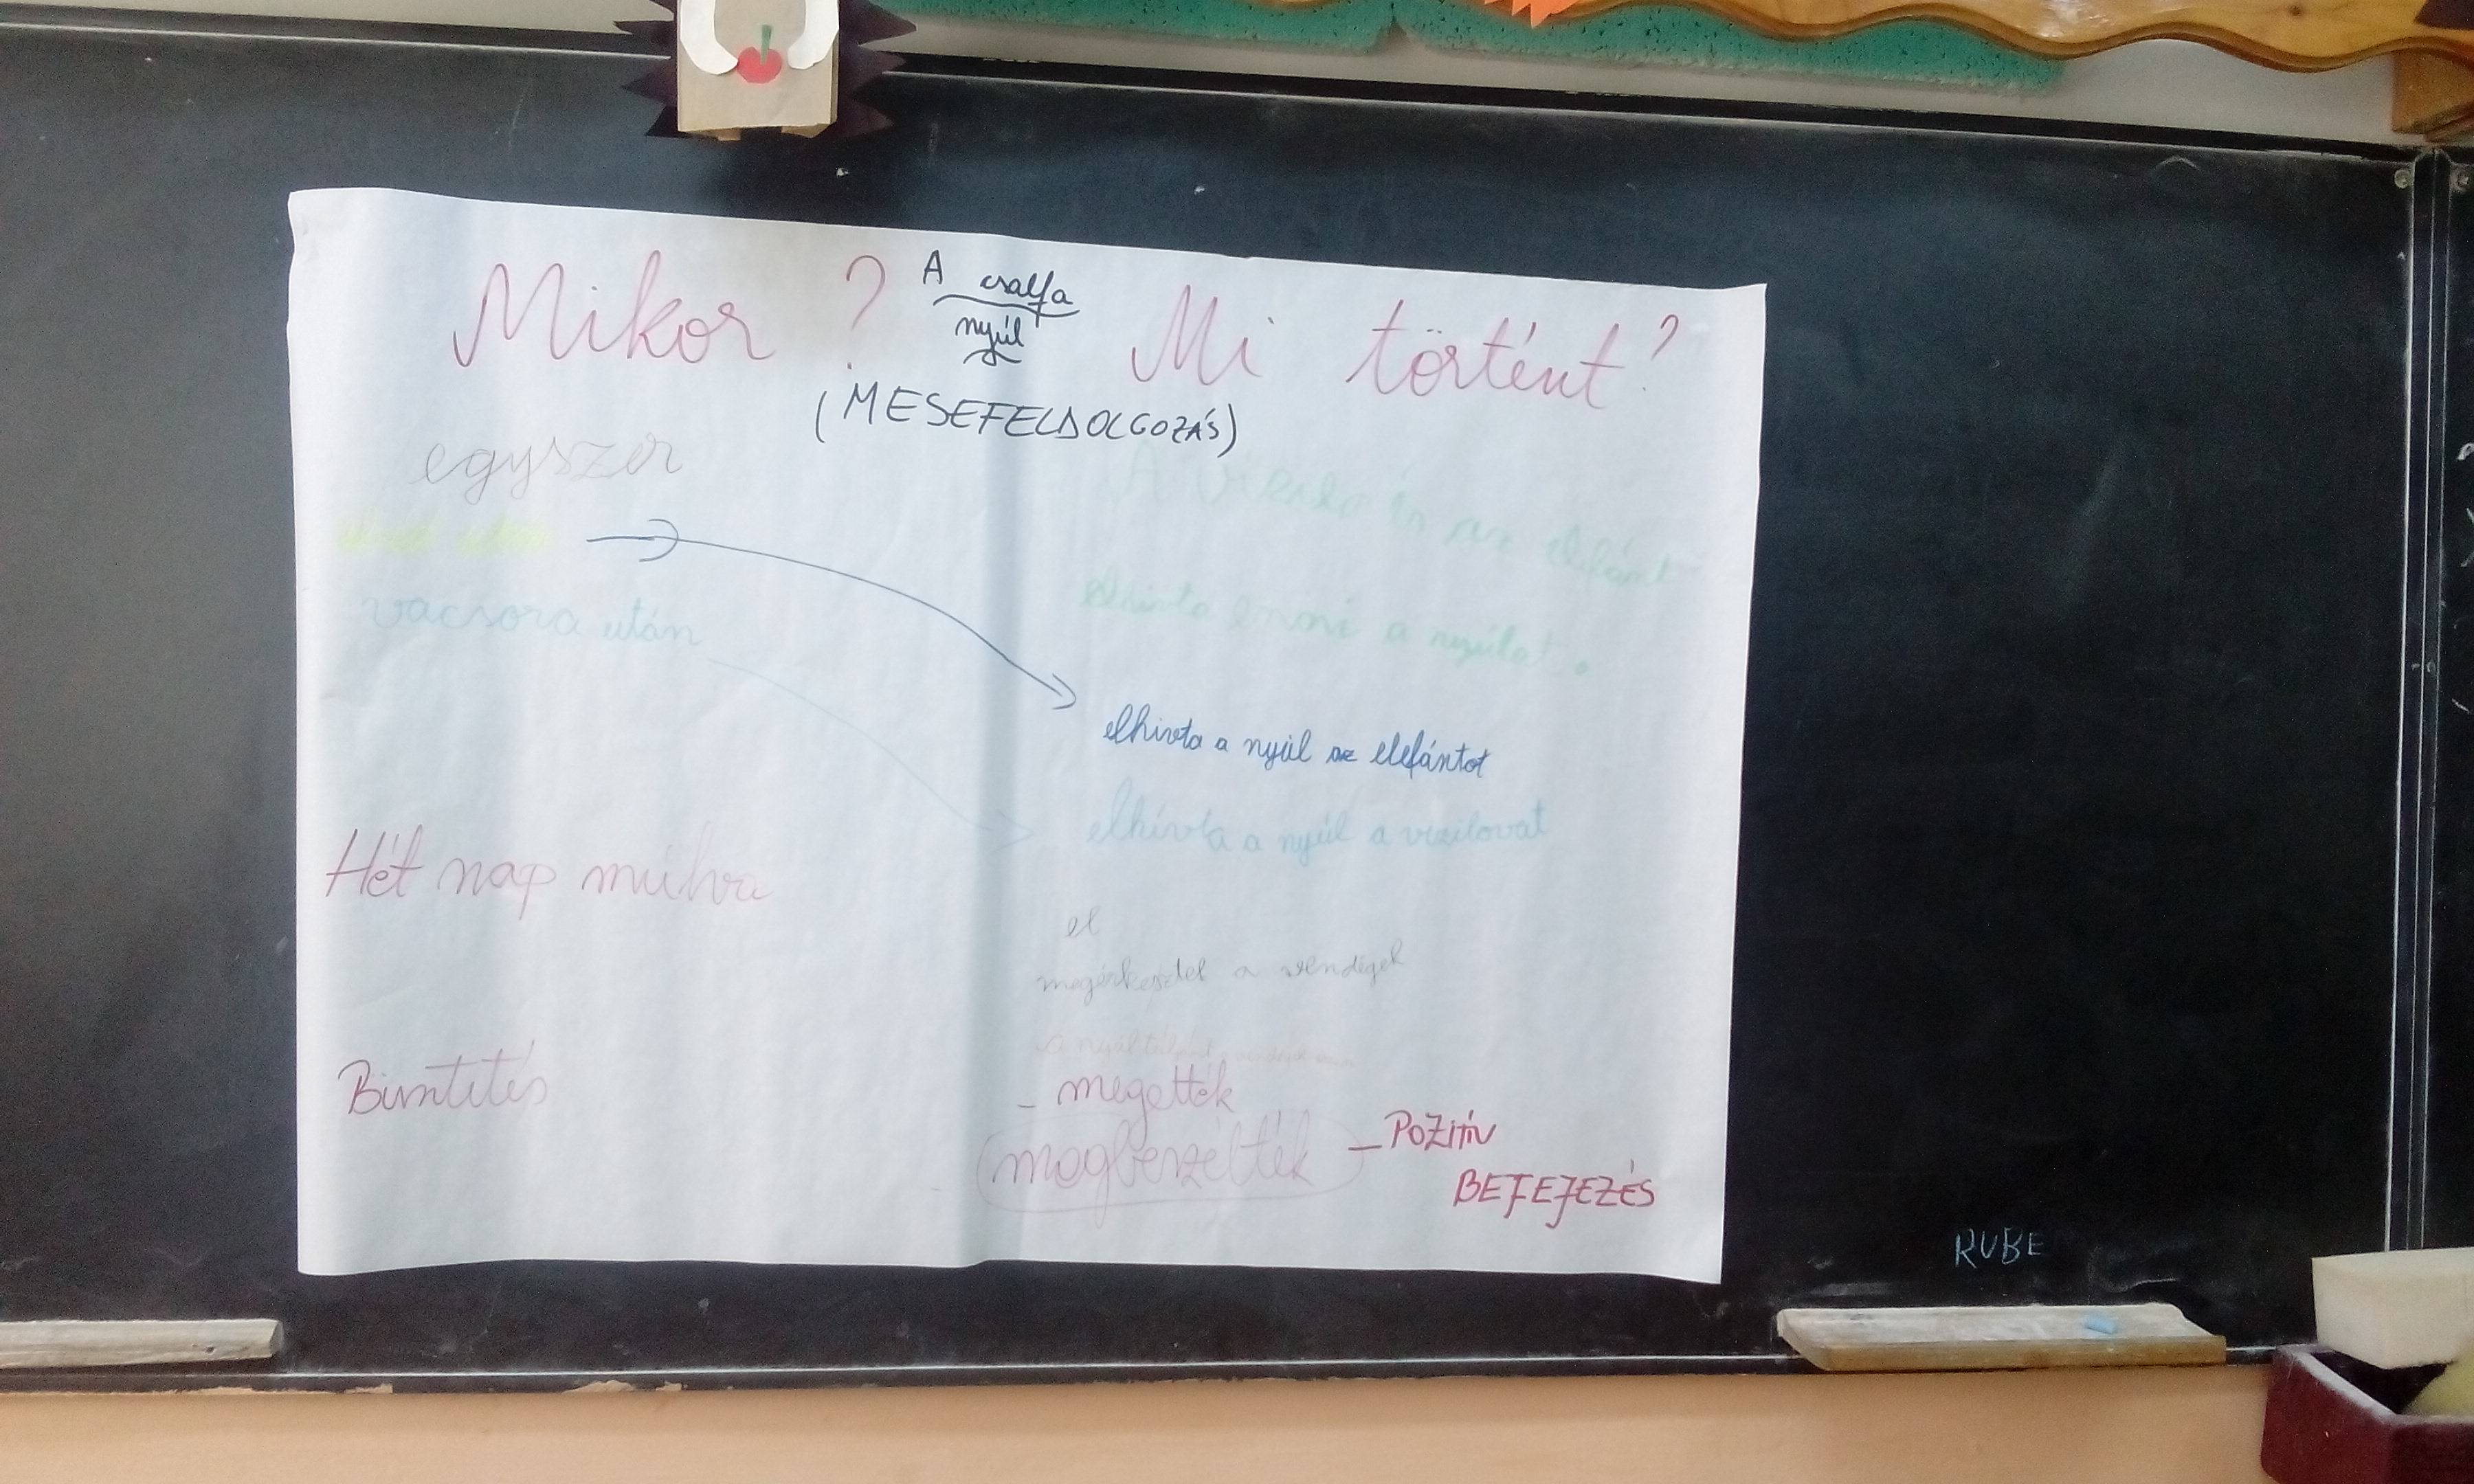 Mikor ?
A csalfa
nyúl
Mi történt?
(MESEFELDOLGOZÁS)
egyszer
vacsora után
A víziló és az elefánt
elhívta enni a nyúlat.
elhívta a nyúl az elefántot
elhívta a nyúl a vizilovat
Hét nap múlva
el
megérkeztek a vendégek
Büntetés
- megették
megbeszélték
- POZITÍV
BEFEJEZÉS
RUBE